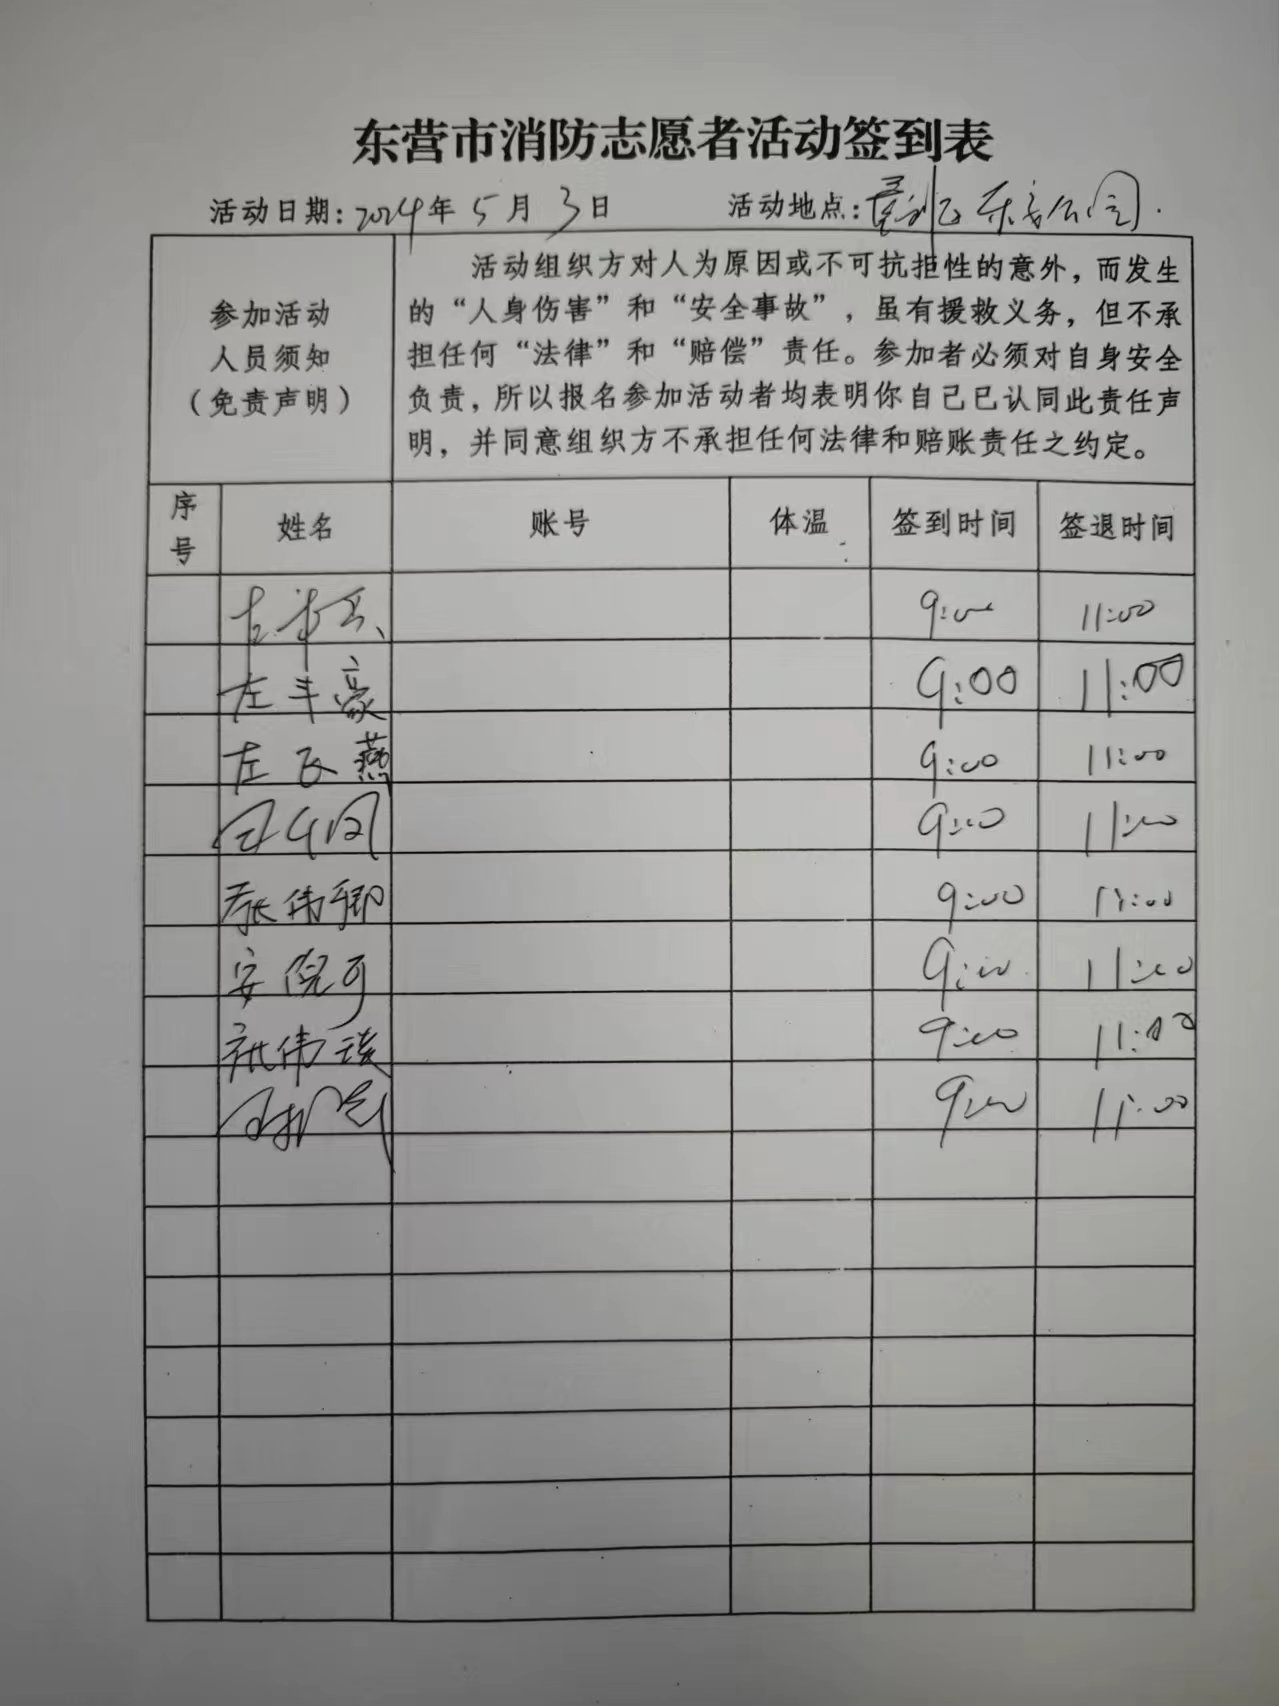 东营市消防志愿者活动签到表
活动日期:2024年5月3日 活动地点:
参加活动
人员须知
(免责声明)
活动组织方对人为原因或不可抗拒性的意外，而发生
的“人身伤害”和“安全事故”，虽有援救义务，但不承
担任何“法律”和“赔偿”责任。参加者必须对自身安全
负责，所以报名参加活动者均表明你自己已认同此责任声
明，并同意组织方不承担任何法律和赔账责任之约定。
序号 姓名 账号 体温 签到时间 签退时间
9:00 11:00
左丰豪 9:00 11:00
左飞燕 9:00 11:00
9:00 11:00
张伟卿 9:00 11:00
安倪可 9:00 11:00
伟 9:00 11:00
9:00 11:00